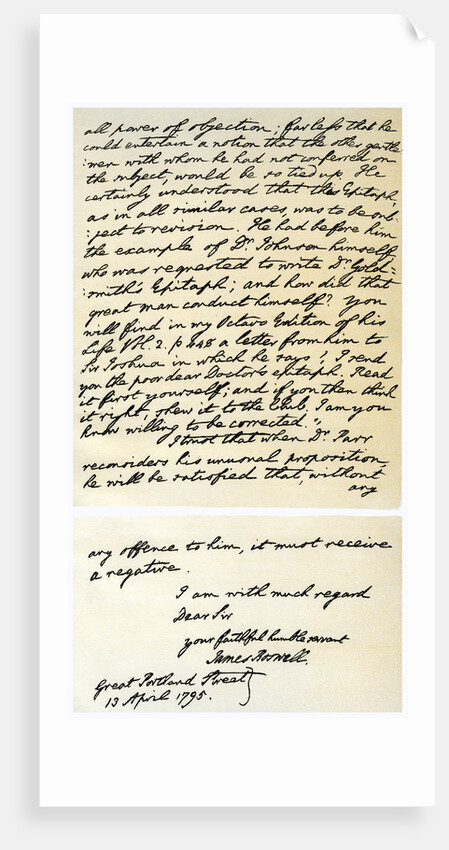 all power of objection; far less that he
could entertain a notion that the other gentle
:men with whom he had not conferred on
the subject, would be so tied up. He
certainly understood that the Epitaph,
as in all similar cases, was to be sub
:ject to revision. He had before him
the example of Dr. Johnson himself
who was requested to write Dr. Gold=
:smith's Epitaph; and how did that
great man conduct himself? You
will find in my Octavo Edition of his
Life Vol. 2. p 448 a letter from him to
Sir Joshua in which he says, 'I send
you the poor dear Doctor's epitaph. Read
it first yourself; and if you then think
it right, shew it to the Club. I am you
know willing to be corrected."
I trust that when Dr. Parr
reconsiders his unusual proposition,
he will be satisfied that, without
any
any offence to him, it must receive
a negative.
I am with much regard
Dear Sir
your faithful humble servant
James Boswell.
Great Portland Street
13 April 1795.